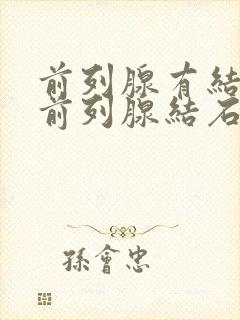 前列腺有結
前列腺結石
孫會忠